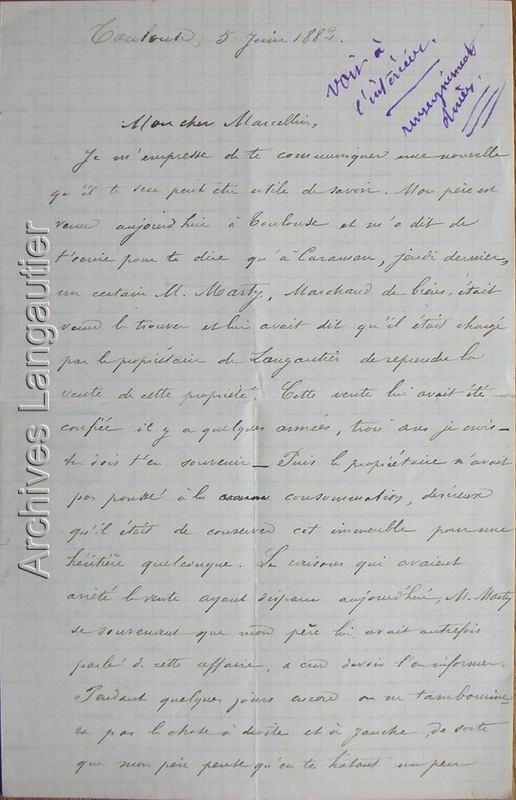 Toulouse, 5 Juin 1882.
voir à
l'intérieur.
renseignement
Mon cher Marcellin,
Je m'empresse de te communiquer une nouvelle
qu'il te sera peut être utile de savoir. Mon père est
venu aujourd'hui à Toulouse et m'a dit de
t'écrire pour te dire qu'à Caraman, jeudi dernier,
un certain M. Marty, Marchand de biens, était
venu le trouver et lui avait dit qu'il était chargé
par le propriétaire de Langautier de reprendre la
vente de cette propriété. Cette vente lui avait été
confiée il y a quelques années, trois ans je crois –
tu dois t'en souvenir – Puis le propriétaire n'avait
pas poussé à la consommation, désireux
qu'il était de conserver cet immeuble pour une
héritière quelconque. Les raisons qui avaient
arrêté la vente ayant disparu aujourd'hui, M. Marty
se souvenant que mon père lui avait autrefois
parlé de cette affaire, a cru devoir l'en informer.
Pendant quelques jours encore on ne tambourine-
ra pas la chose à droite et à gauche, de sorte
que mon père pense qu'en te hâtant un peu
Archives Langautier